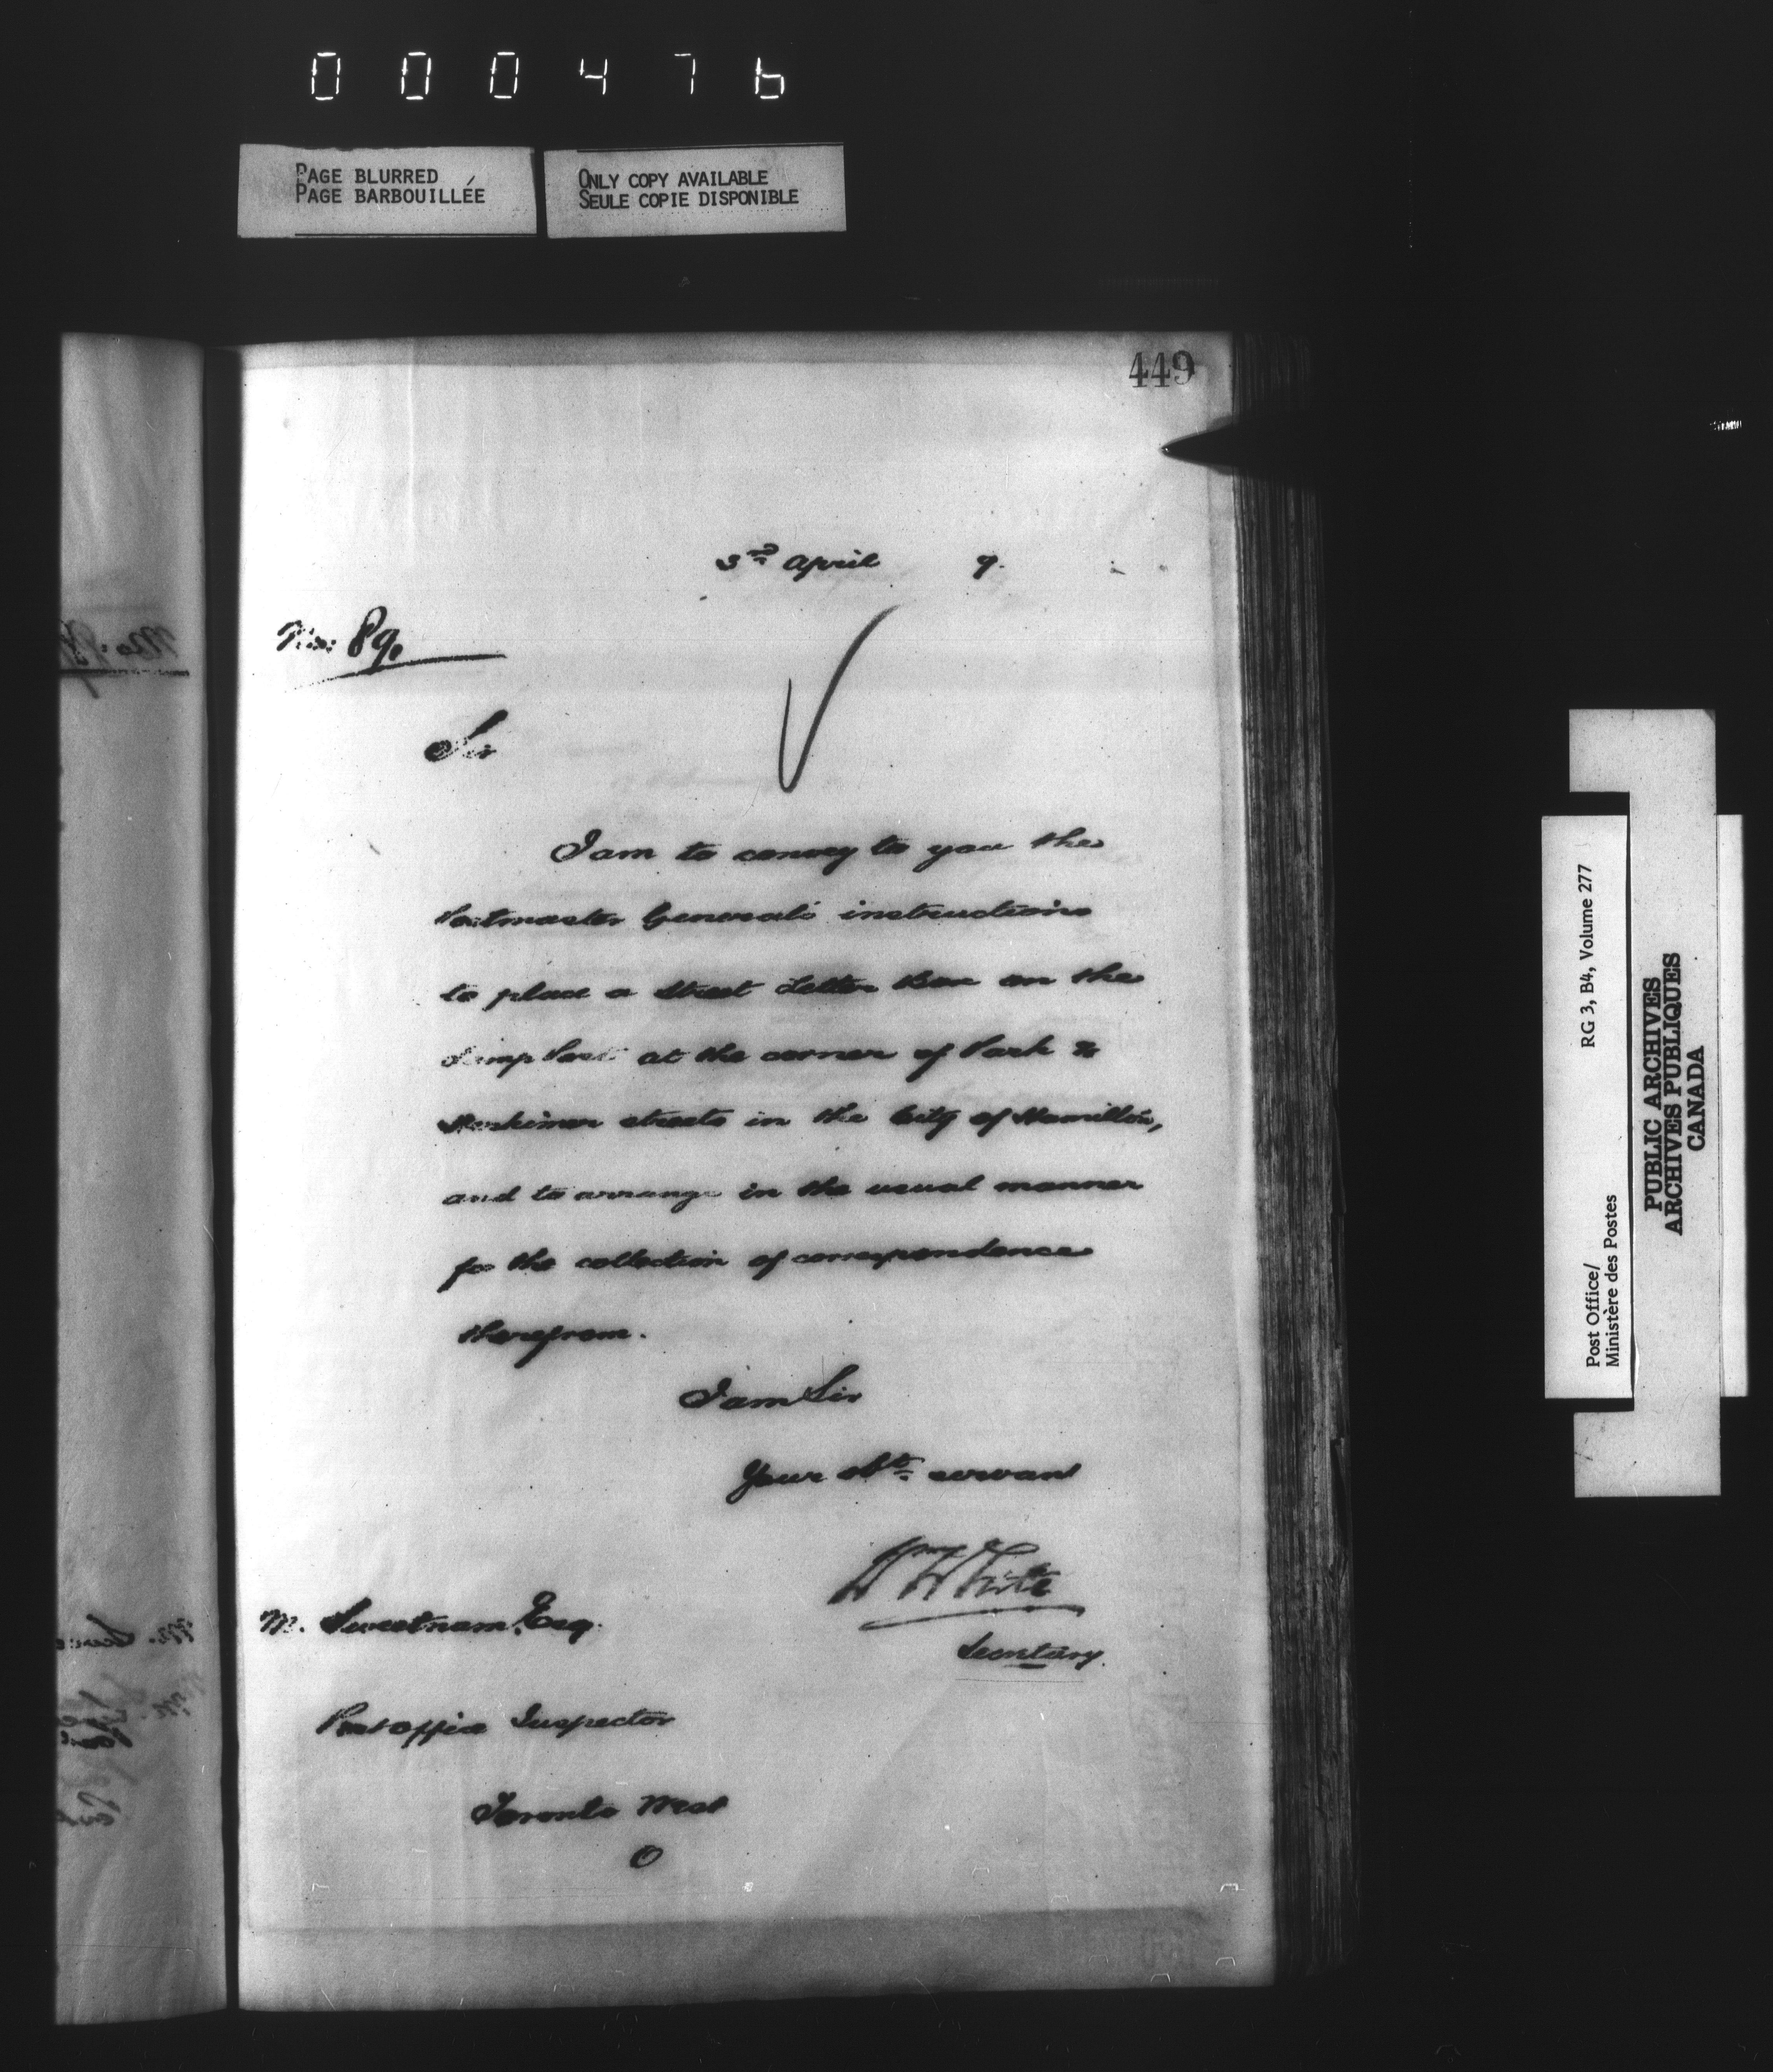 000476
PAGE BLURRED
PAGE BARBOUILLÉE
ONLY COPY AVAILABLE
SEULE COPIE DISPONIBLE
449
3rd April 9.
No: 89.
Sir
I am to convey to you the
Postmaster General's instructions
to place a Street Letter Box on the
Lamp Post at the corner of Park &
Herkimer streets in the City of Hamilton,
and to arrange in the usual manner
for the collection of correspondence
therefrom.
I am Sir
Your obt. servant
Wm White
Secretary.
M. Sweetnam, Esq.
Post Office Inspector
Toronto West
O
RG 3, B4, Volume 277
Post Office/
Ministère des Postes
PUBLIC ARCHIVES
ARCHIVES PUBLIQUES
CANADA